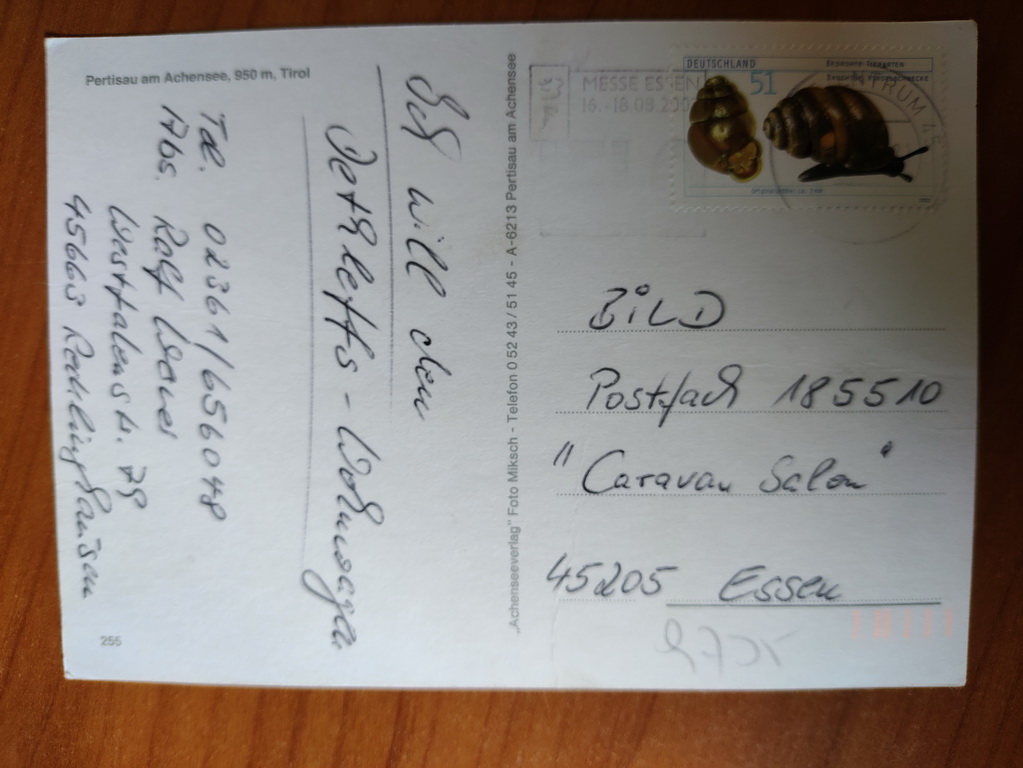 Pertisau am Achensee, 950 m, Tirol
Ich will den
Dethleffs - Wohnwagen
Tel. 02361/656048
Abs. Ralf
Westfalenstr. 79
45663 Recklinghausen
255
„Achenseeverlag" Foto Miksch - Telefon 0 52 43 / 51 45 - A-6213 Pertisau am Achensee
MESSE ESSEN
16.-18.09.
DEUTSCHLAND
51
ZENTRUM 45
BILD
Postfach 185510
"Caravan Salon"
45205 Essen